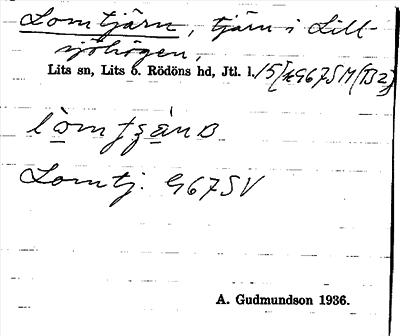 Lomtjärn, tjärn i Lill-
sjöhögen,
Lits sn, Lits o. Rödöns hd, Jtl. l.
Lomtj. G67SV
A. Gudmundson 1936.